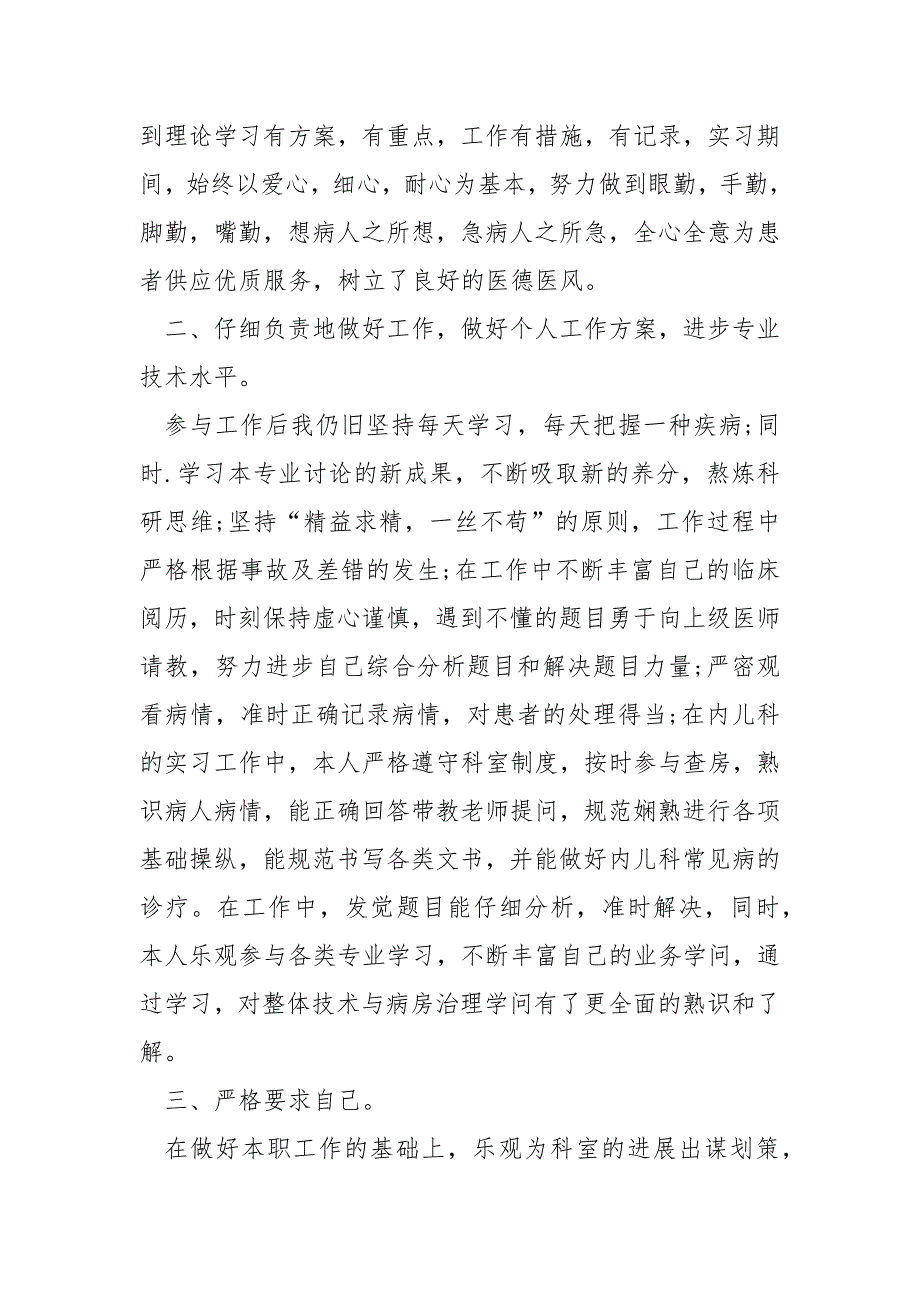 到理论学习有方案，有重点，工作有措施，有记录，实习期
间，始终以爱心，细心，耐心为基本，努力做到眼勤，手勤，
脚勤，嘴勤，想病人之所想，急病人之所急，全心全意为患
者供应优质服务，树立了良好的医德医风。
二、仔细负责地做好工作，做好个人工作方案，进步专业
技术水平。
参与工作后我仍旧坚持每天学习，每天把握一种疾病;同
时.学习本专业讨论的新成果，不断吸取新的养分，熬炼科
研思维;坚持“精益求精，一丝不苟”的原则，工作过程中
严格根据事故及差错的发生;在工作中不断丰富自己的临床
阅历，时刻保持虚心谨慎，遇到不懂的题目勇于向上级医师
请教，努力进步自己综合分析题目和解决题目力量;严密观
看病情，准时正确记录病情，对患者的处理得当;在内儿科
的实习工作中，本人严格遵守科室制度，按时参与查房，熟
识病人病情，能正确回答带教老师提问，规范娴熟进行各项
基础操纵，能规范书写各类文书，并能做好内儿科常见病的
诊疗。在工作中，发觉题目能仔细分析，准时解决，同时，
本人乐观参与各类专业学习，不断丰富自己的业务学问，通
过学习，对整体技术与病房治理学问有了更全面的熟识和了
解。
三、严格要求自己。
在做好本职工作的基础上，乐观为科室的进展出谋划策，